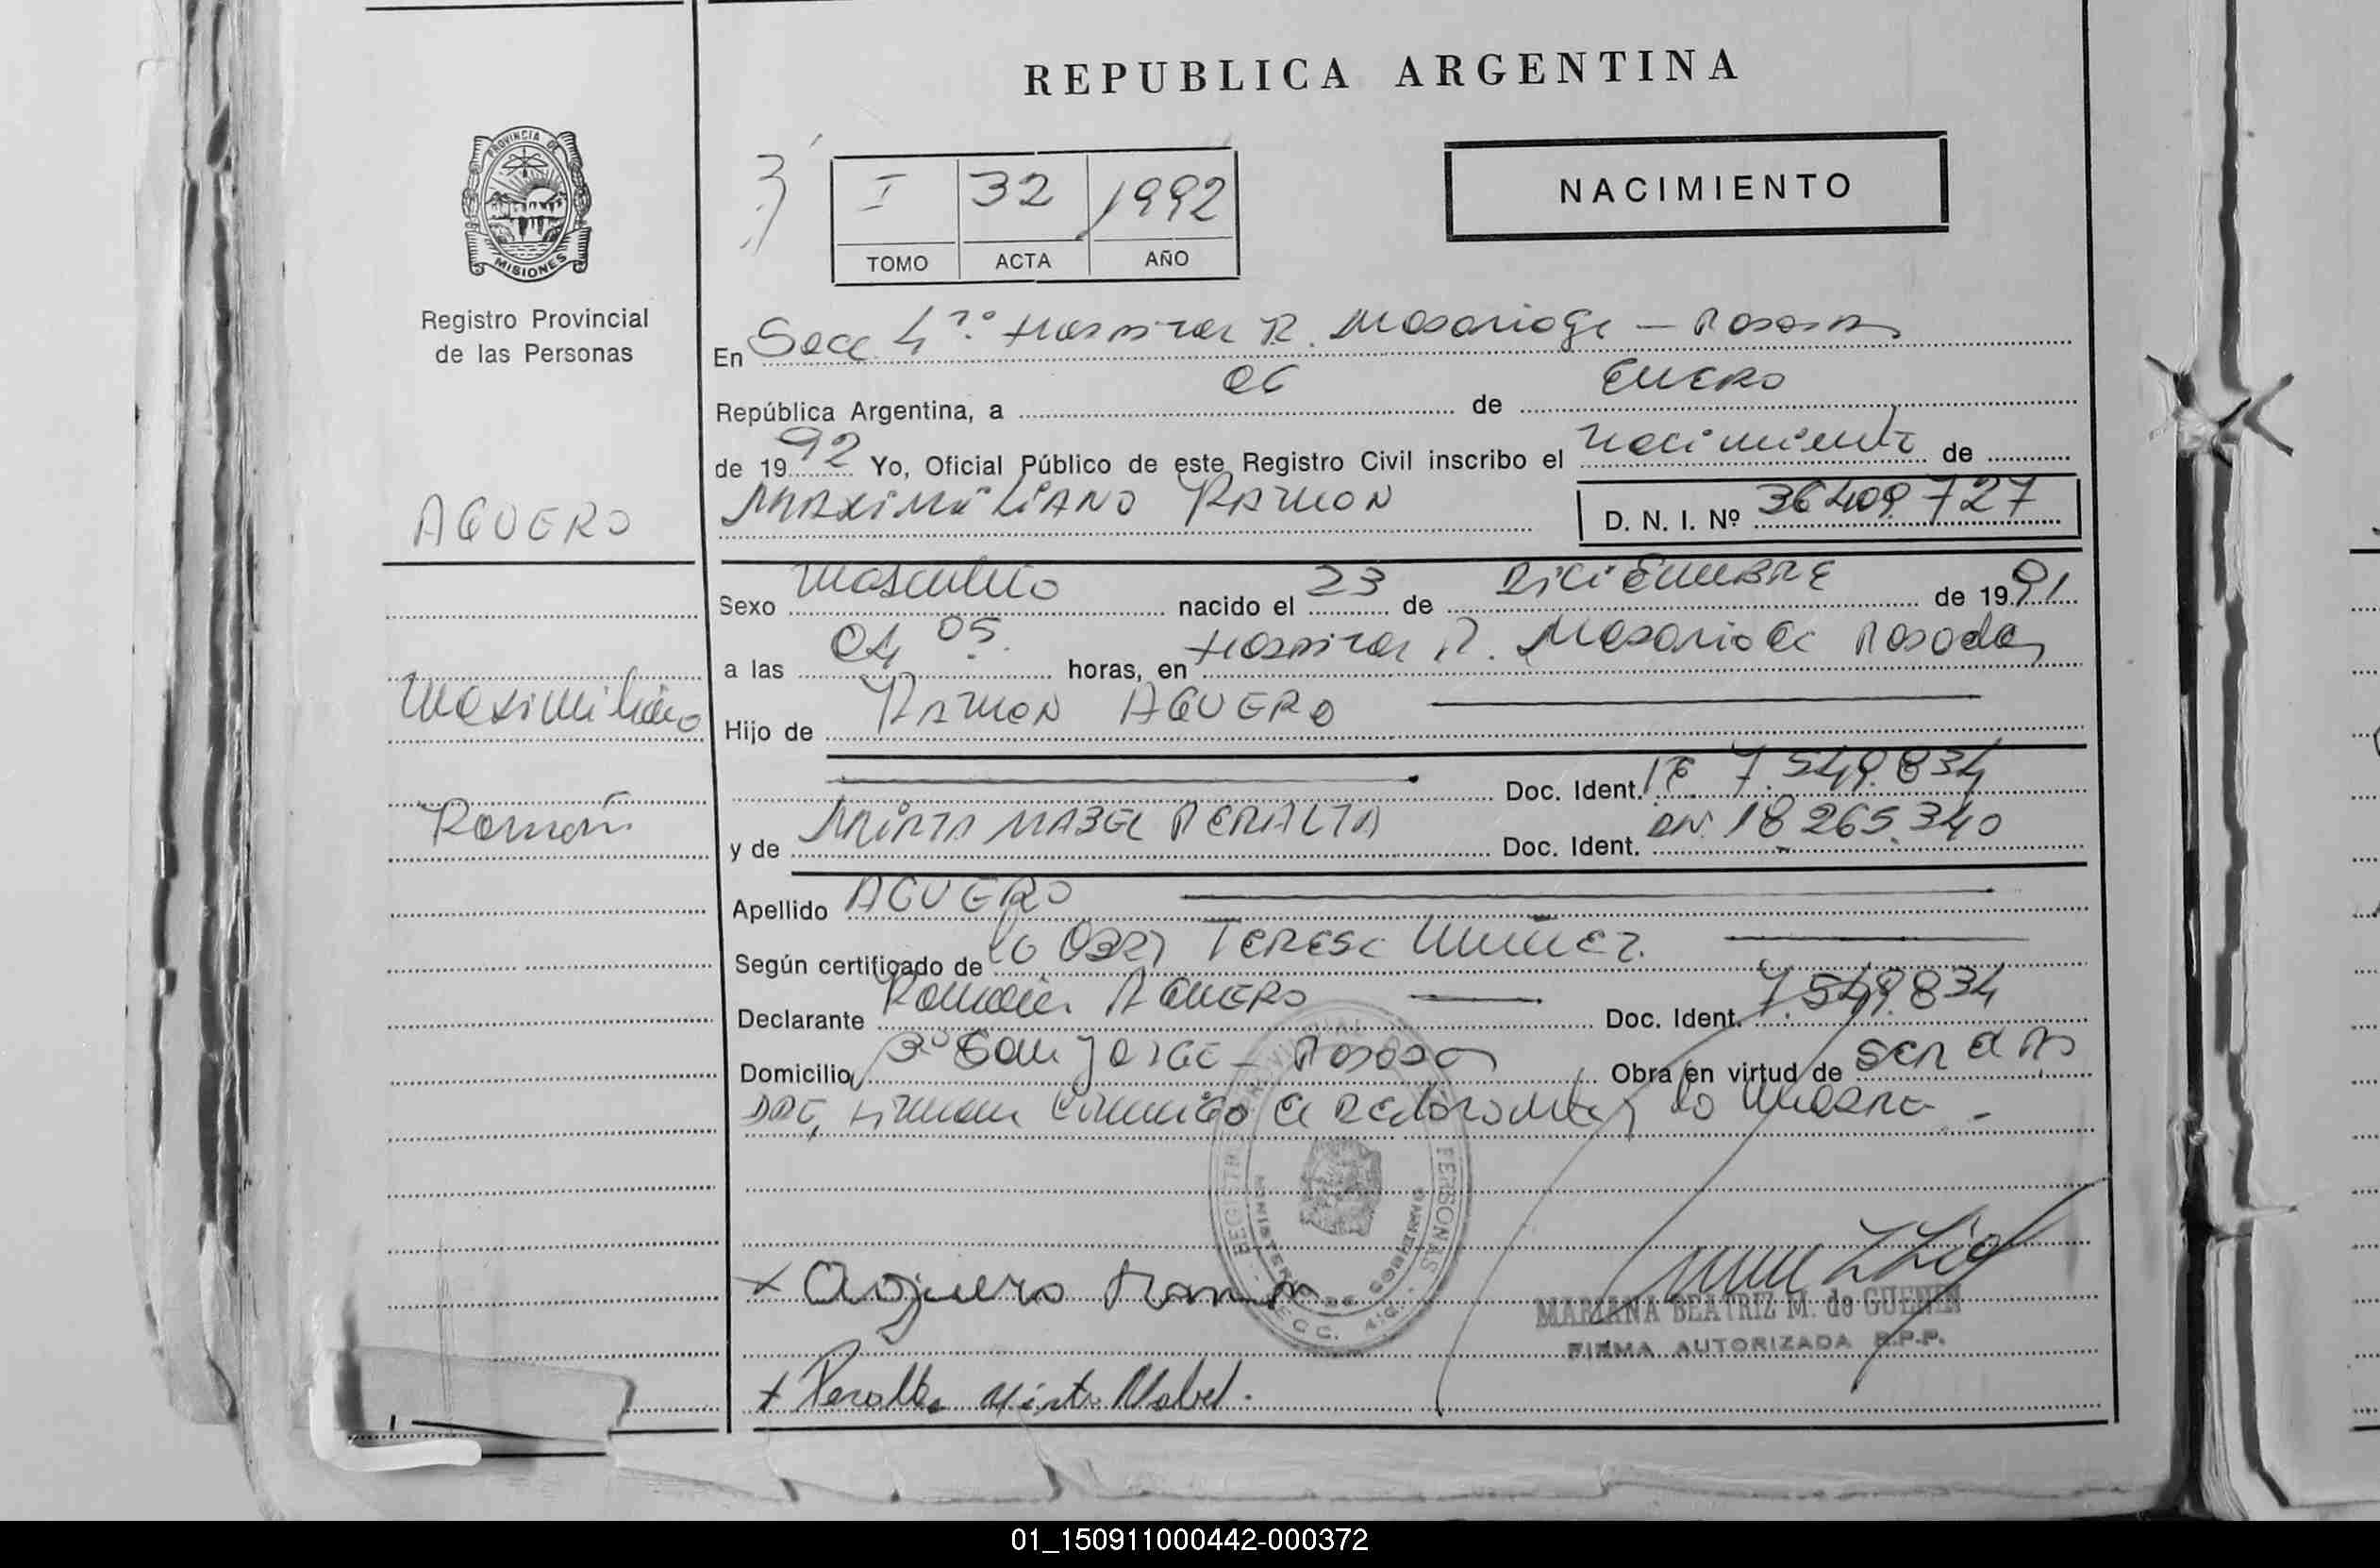 REPUBLICA ARGENTINA
PROVINCIA DE
MISIONES
Registro Provincial
de las Personas
I 32 1992
TOMO ACTA AÑO
NACIMIENTO
En Secc 4
República Argentina, a 06 de ENERO
de 1992 Yo, Oficial Público de este Registro Civil inscribo el nacimiento de
AGUERO
MAXIMILIANO RAMON
D. N. I. Nº 36409727
Sexo masculino nacido el 23 de DICIEMBRE de 1991
a las 04 05 horas, en Hospital R.
Maximiliano
Hijo de RAMON AGUERO
Doc. Ident. 7.549.834
Ramón
y de MIRTA MABEL PERALTA Doc. Ident. 18.265.340
Apellido AGUERO
Según certificado de TERESA
Declarante AGUERO Doc. Ident. 7.549.834
Domicilio San JORGE Obra en virtud de
firman conmigo el declarante y la madre
REGISTRO PROVINCIAL DE LAS PERSONAS
MINISTERIO DE GOBIERNO
x Aguero Ramon
MARIANA BEATRIZ M. de GUENIN
FIRMA AUTORIZADA R.P.P.
x Peralta Mirta Mabel.
01_150911000442-000372